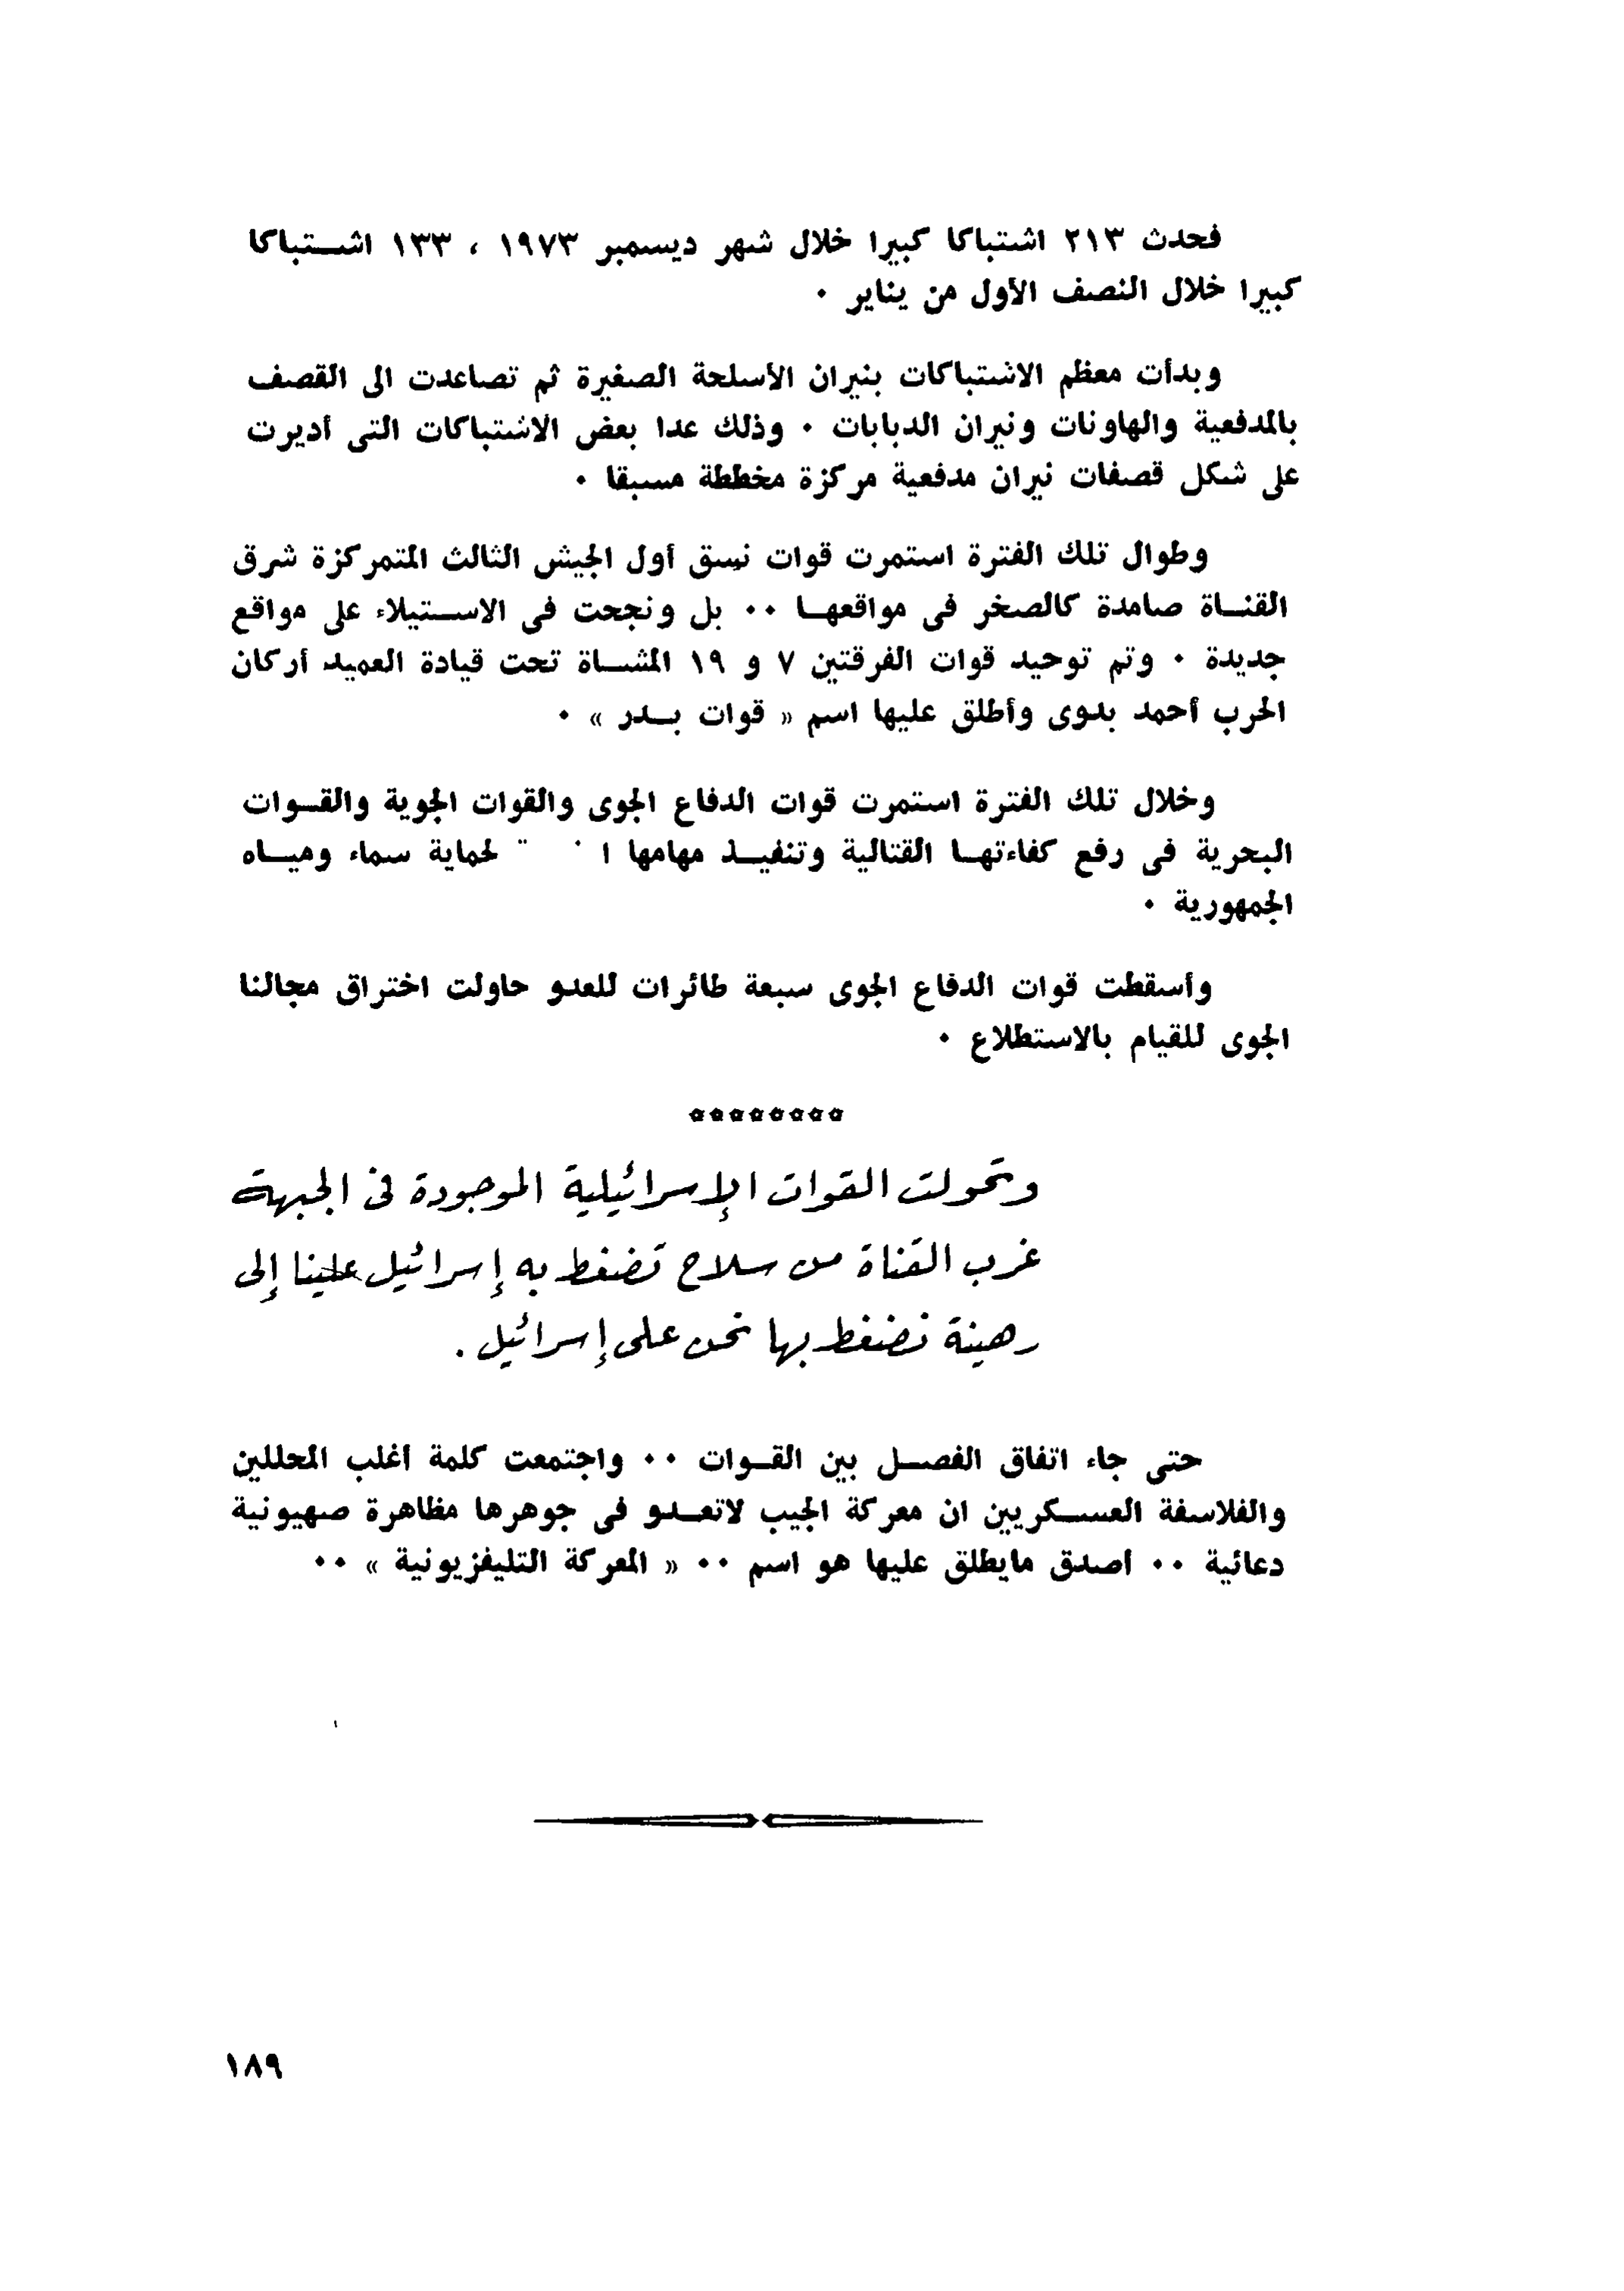 فحدث ٢١٣ اشتباكا كبيرا خلال شهر ديسمبر ١٩٧٣ ، ١٣٣ اشتباكا
كبيرا خلال النصف الأول من يناير ٠
وبدأت معظم الاشتباكات بنيران الأسلحة الصغيرة ثم تصاعدت الى القصف
بالمدفعية والهاونات ونيران الدبابات ٠ وذلك عدا بعض الاشتباكات التى أديرت
على شكل قصفات نيران مدفعية مركزة مخططة مسبقا ٠
وطوال تلك الفترة استمرت قوات نسق أول الجيش الثالث المتمركزة شرق
القناة صامدة كالصخر فى مواقعها ٠٠ بل ونجحت فى الاستيلاء على مواقع
جديدة ٠ وتم توحيد قوات الفرقتين ٧ و ١٩ المشاة تحت قيادة العميد أركان
الحرب أحمد بدوى وأطلق عليها اسم « قوات بدر » ٠
وخلال تلك الفترة استمرت قوات الدفاع الجوى والقوات الجوية والقوات
البحرية فى رفع كفاءتها القتالية وتنفيذ مهامها لحماية سماء ومياه
الجمهورية ٠
وأسقطت قوات الدفاع الجوى سبعة طائرات للعدو حاولت اختراق مجالنا
الجوى للقيام بالاستطلاع ٠
********
وتحولت القوات الإسرائيلية الموجودة فى الجبهة
غرب القناة من سلاح تضغط به إسرائيل علينا إلى
رهينة نضغط بها نحن على إسرائيل .
حتى جاء اتفاق الفصل بين القوات ٠٠ واجتمعت كلمة أغلب المحللين
والفلاسفة العسكريين ان معركة الجيب لاتعدو فى جوهرها مظاهرة صهيونية
دعائية ٠٠ أصدق مايطلق عليها هو اسم ٠٠ « المعركة التليفزيونية » ٠٠
١٨٩